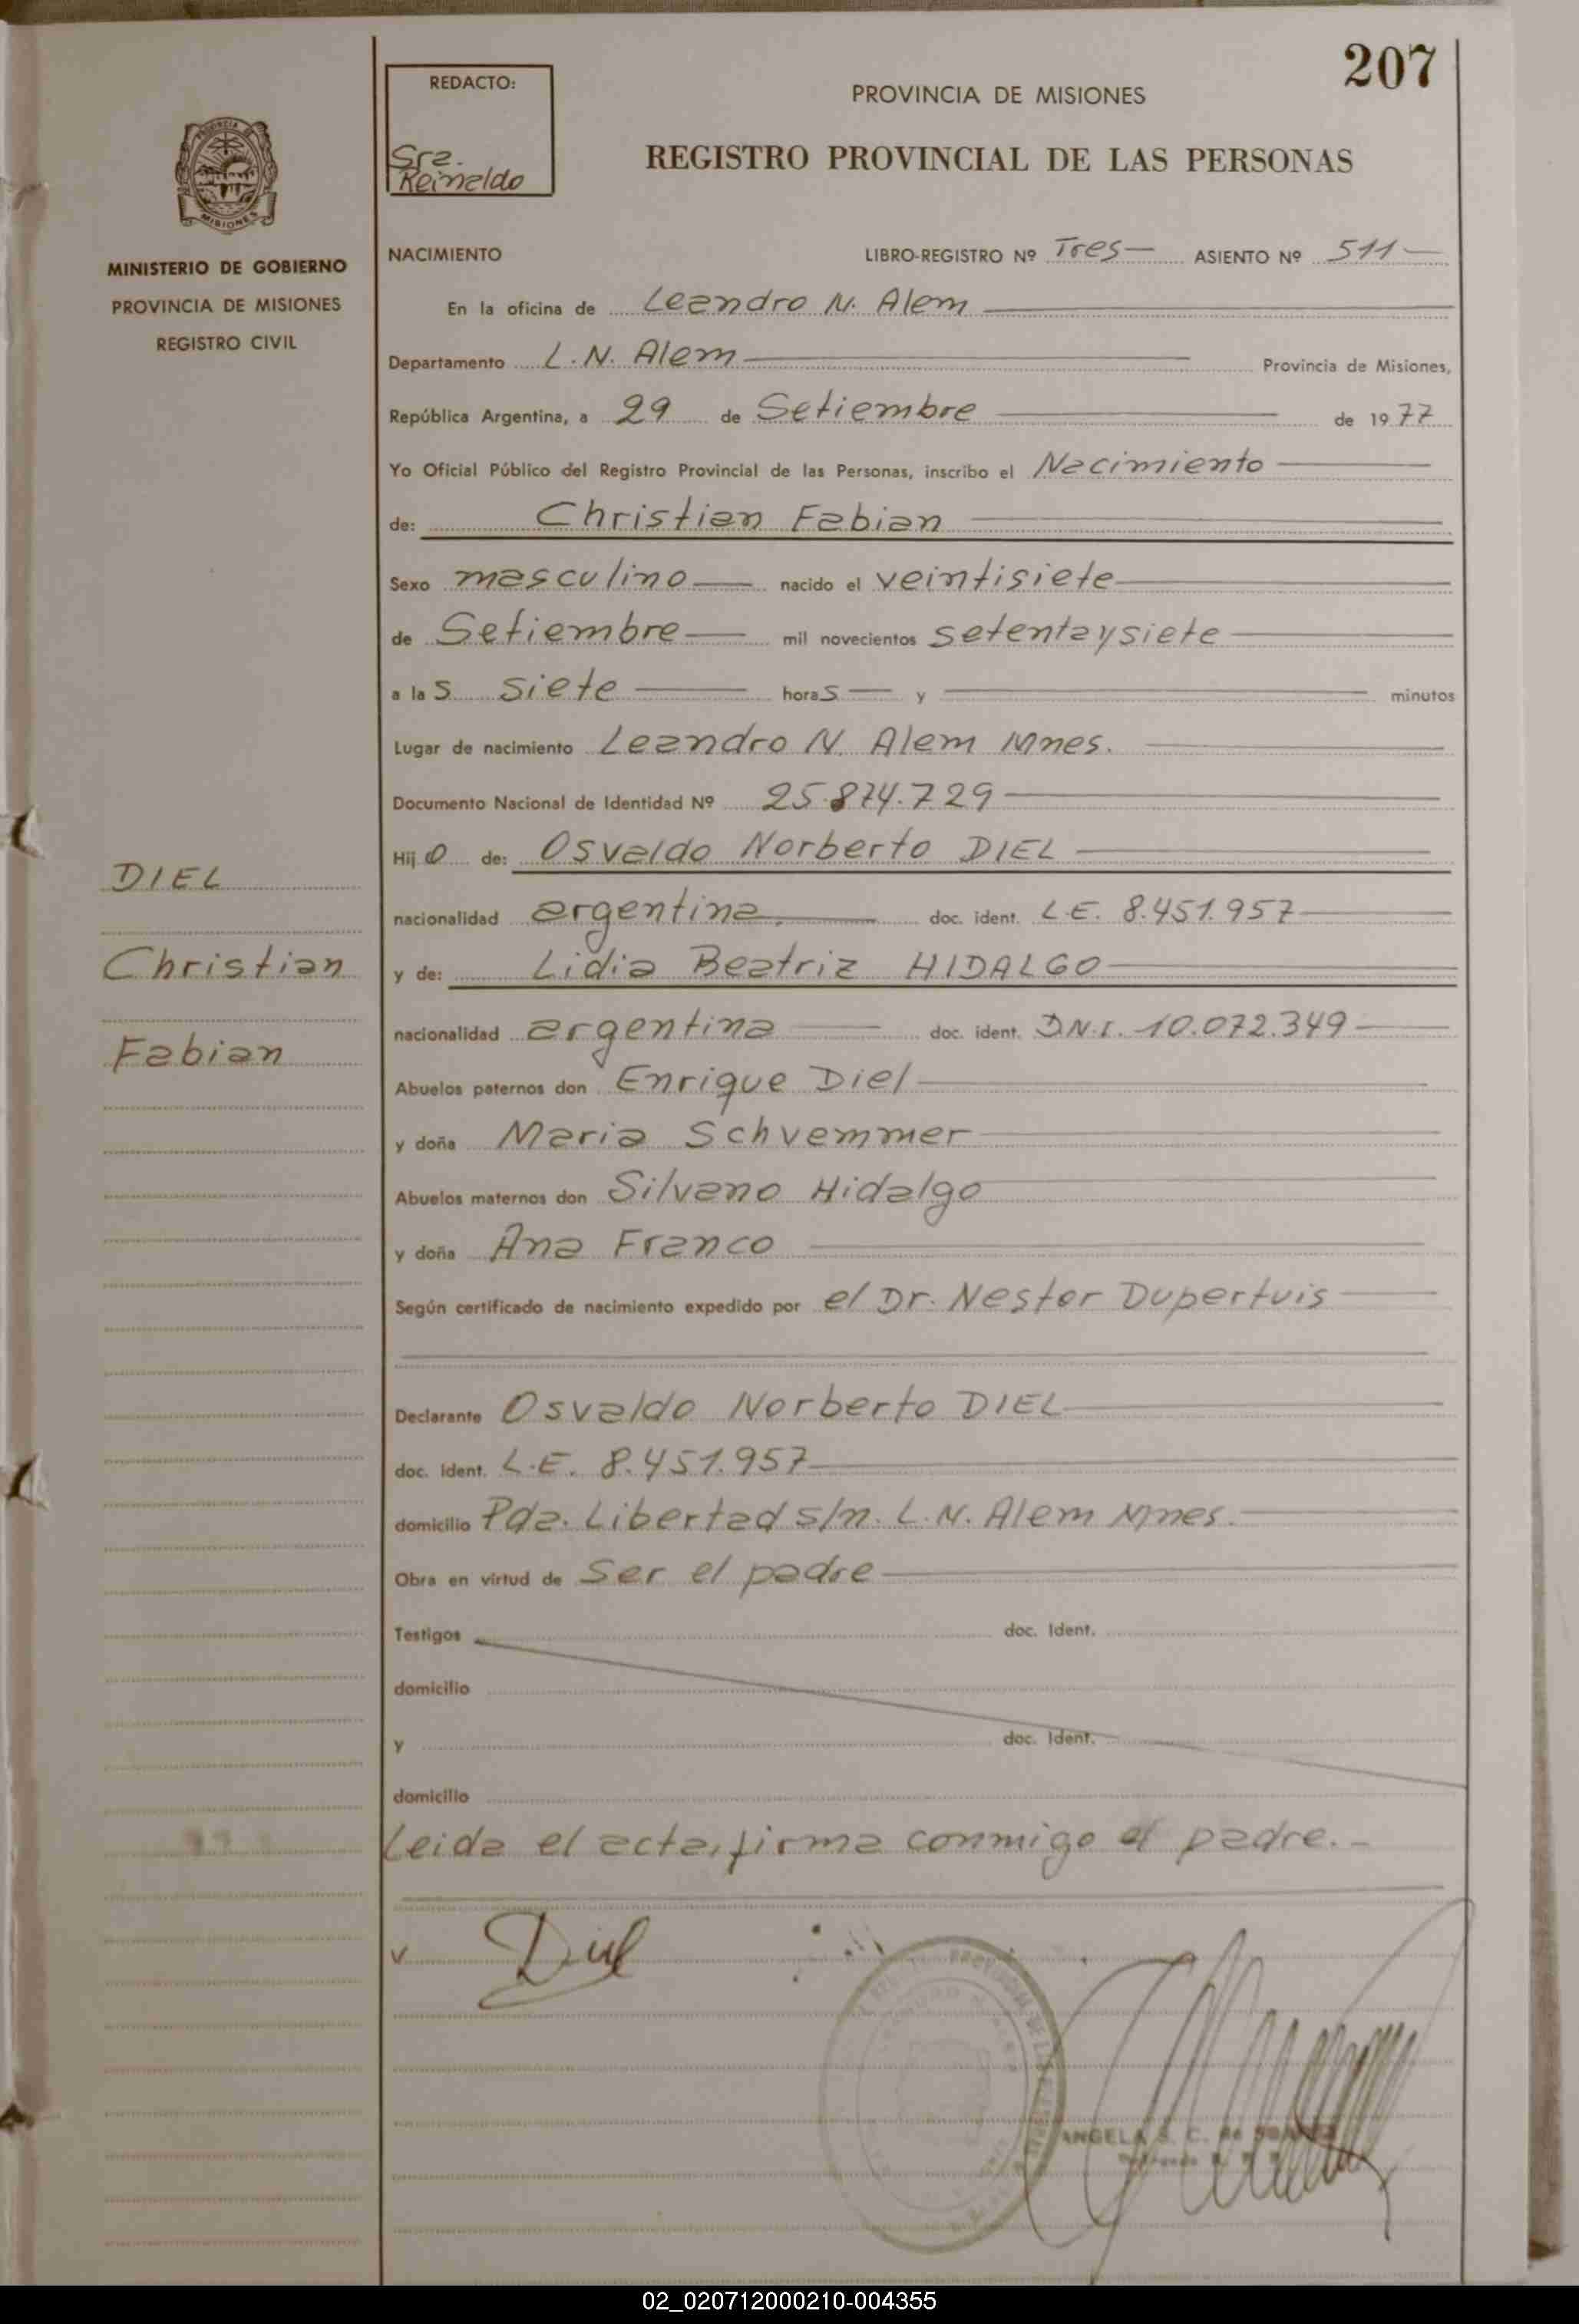 207
REDACTO:
Sra.
Reinaldo
PROVINCIA DE MISIONES
REGISTRO PROVINCIAL DE LAS PERSONAS
PROVINCIA DE
MISIONES
MINISTERIO DE GOBIERNO
PROVINCIA DE MISIONES
REGISTRO CIVIL
NACIMIENTO LIBRO-REGISTRO Nº Tres ASIENTO Nº 511
En la oficina de Leandro N. Alem
Departamento L. N. Alem Provincia de Misiones,
República Argentina, a 29 de Setiembre de 1977
Yo Oficial Público del Registro Provincial de las Personas, inscribo el Nacimiento
de: Christian Fabian
Sexo masculino nacido el veintisiete
de Setiembre mil novecientos setentaysiete
a las siete horas y minutos
Lugar de nacimiento Leandro N. Alem Mnes.
Documento Nacional de Identidad Nº 25.874.729
Hijo de: Osvaldo Norberto DIEL
nacionalidad argentina. doc. ident. L.E. 8.451.957
y de: Lidia Beatriz HIDALGO
nacionalidad argentina doc. ident. D.N.I. 10.072.349
Abuelos paternos don Enrique Diel
y doña Maria Schvemmer
Abuelos maternos don Silvano Hidalgo
y doña Ana Franco
Según certificado de nacimiento expedido por el Dr. Nestor Dupertuis
Declarante Osvaldo Norberto DIEL
doc. Ident. L.E. 8.451.957
domicilio Pda. Libertad s/n. L.N. Alem Mnes.
Obra en virtud de Ser el padre
Testigos doc. Ident.
domicilio
y doc. Ident.
domicilio
Leida el acta, firma conmigo el padre.-
DIEL
Christian
Fabian
Diel
ANGELA S. C. de
02_020712000210-004355